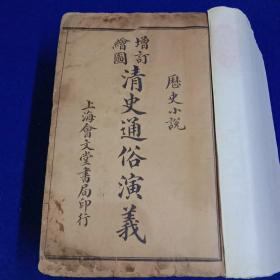 歷史小說
增訂
繪圖
清史通俗演義
上海會文堂書局印行